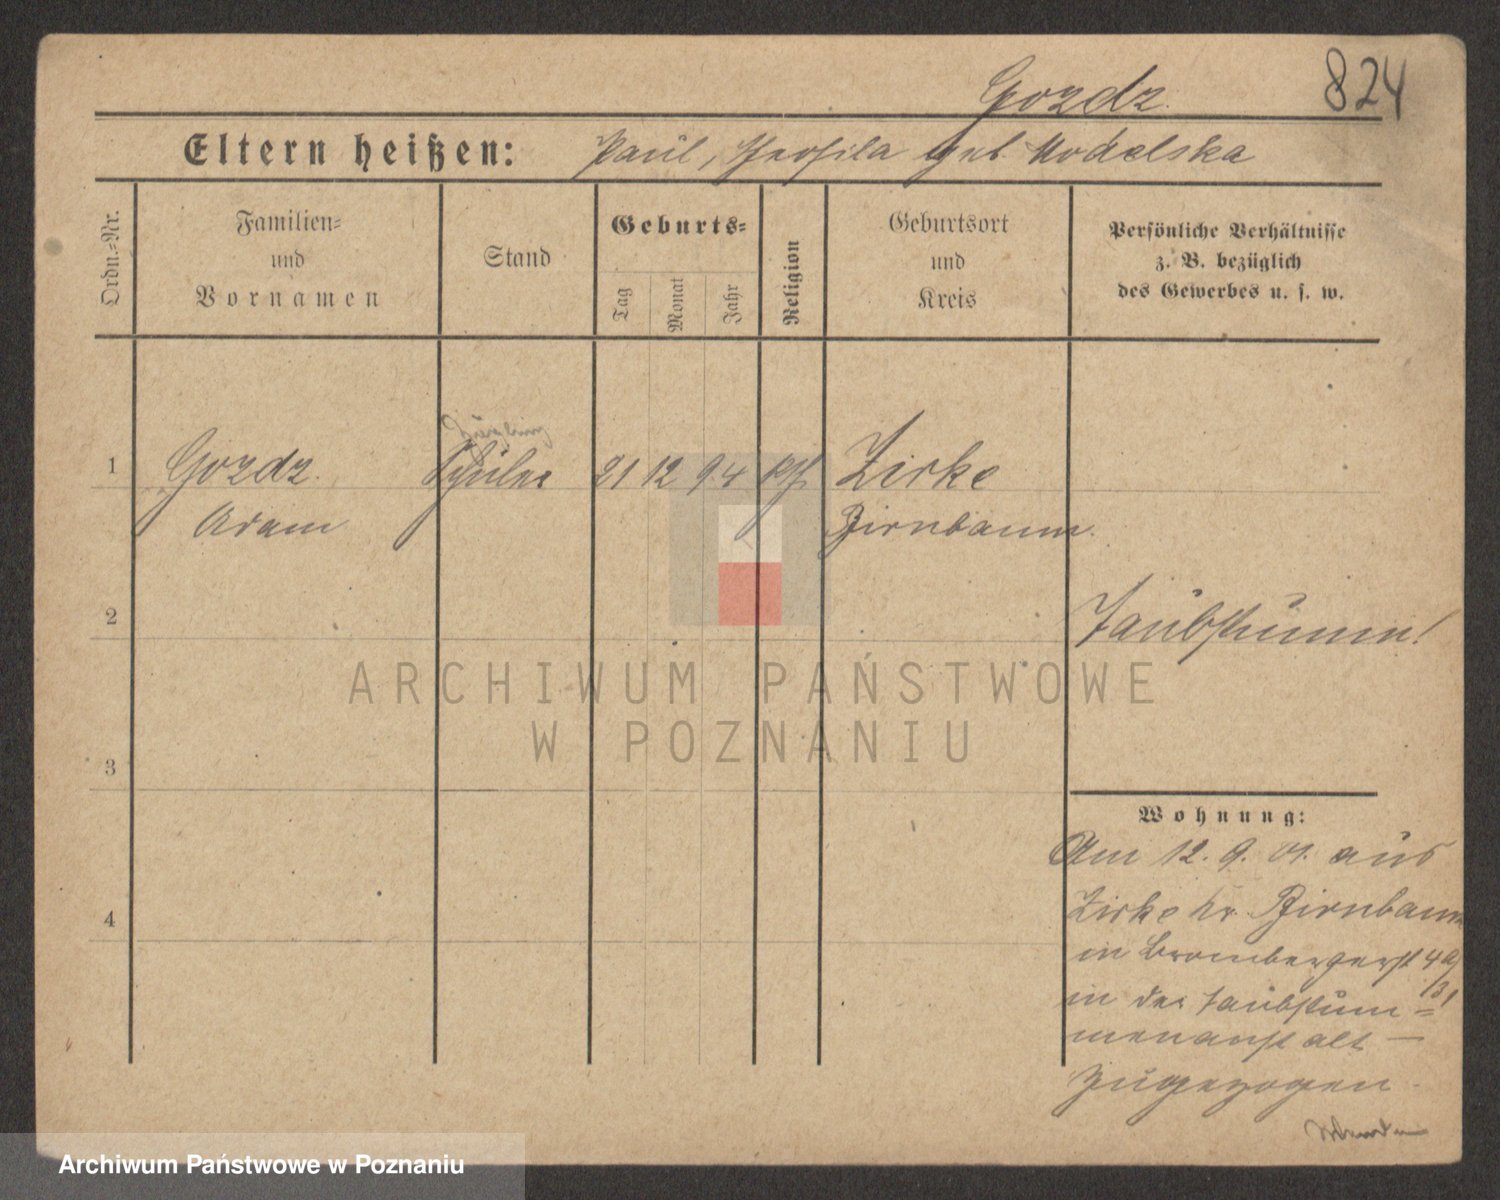 824
Gozdz
Eltern heißen: Paul, Theofila geb. Modelska
Ordn.=Nr.
Familien= und Vornamen
Stand
Geburts=
Tag
Monat
Jahr
Religion
Geburtsort und Kreis
Persönliche Verhältnisse
z. B. bezüglich
des Gewerbes u. s. w.
1 Gozdz Schüler 21 12 94 kth Zirke
Adam Birnbaum
2
Taubstumm!
3
Wohnung:
Am 12. 9. 01. aus
Zirke Kr. Birnbaum
4
in Brombergerst 4a/
31
in der Taubstum=
menanstalt —
zugezogen
ARCHIWUM PAŃSTWOWE
W POZNANIU
Archiwum Państwowe w Poznaniu